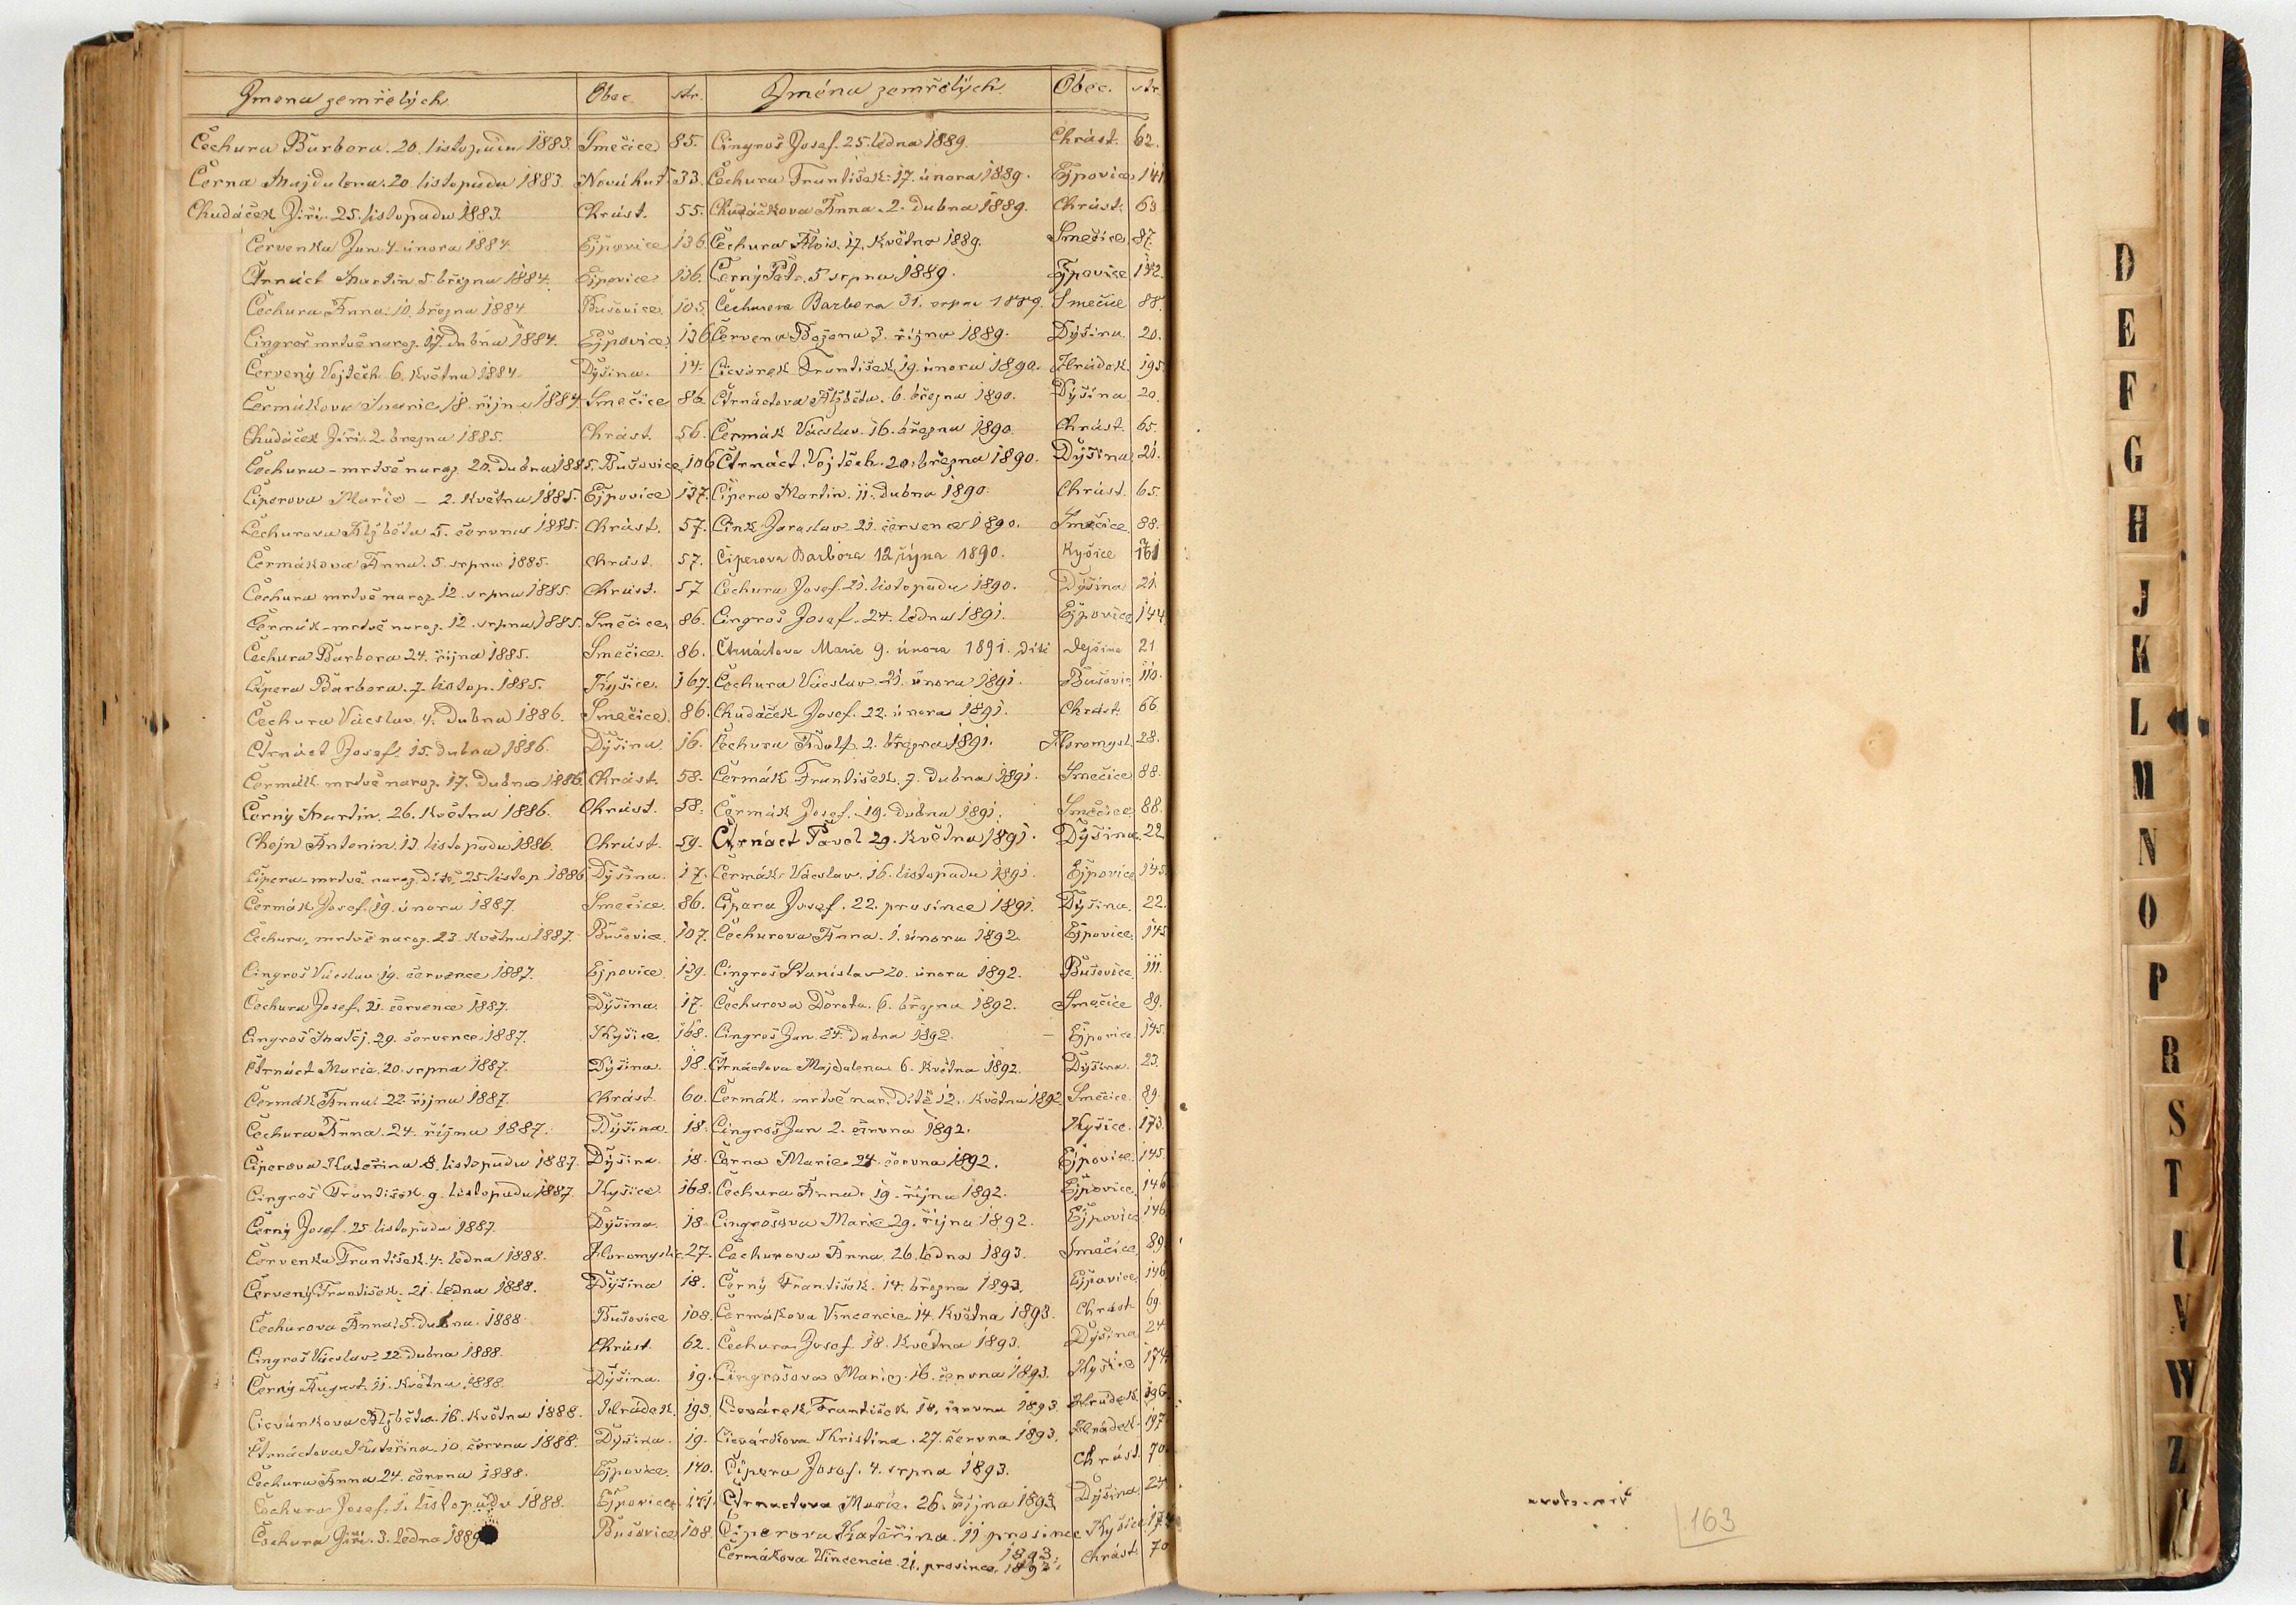 Jmena zemřelých. Obec. str.
Čechura Barbora. 20. listopadu 1883. Smečice 85.
Černa Majdalena. 20. listopadu 1883. Nováhuť 33.
Chudáček Jiří. 25. listopadu 1883. Chrást. 55.
Červenka Jan. 4. února 1884. Ejpovice 136.
Čtrnáct Martin 5. března 1884. Ejpovice 136.
Čechura Anna. 10. března 1884. Bušovice. 105.
Cingroš mrtvě naroz. 17. dubna 1884. Ejpovice. 136
Červený Vojtěch. 6. května 1884. Dýšina. 14.
Čermákova Marie 18. října 1884. Smečice 86.
Chudáček Jiří. 2. března 1885. Chrást. 56.
Čechura - mrtvě naroz. 20. dubna 1885. Bušovice 106
Čiperova Marie - 2. května 1885. Ejpovice 137.
Čechurova Alžběta 5. června 1885. Chrást. 57.
Čermákova Anna. 5. srpna 1885. Chrást. 57.
Čechura mrtvě naroz. 12. srpna 1885. Chrást. 57
Čermák - mrtvě naroz. 12. srpna 1885. Smečice. 86.
Čechura Barbora 24. října 1885. Smečice. 86.
Čipera Barbora. 7. listop. 1885. Kyšice. 167.
Čechura Václav. 4. dubna 1886. Smečice. 86.
Čtrnáct Josef. 15. dubna 1886. Dýšina. 16.
Čermák mrtvě naroz. 17. dubna 1886. Chrást. 58.
Černý Martin. 26. května 1886. Chrást. 58.
Chejn Antonin. 13. listopadu 1886. Chrást. 59.
Čipera - mrtvě naroz. dítě. 25. listop. 1886 Dýšina. 17.
Čermák Josef. 19. února 1887. Smečice. 86.
Čechura, mrtvě naroz. 23. května 1887. Bušovice. 107.
Cingroš Václav. 19. července 1887. Ejpovice. 139.
Čechura Josef. 21. července 1887. Dýšina. 17.
Cingroš Matěj. 29. července 1887. Kyšice. 168.
Čtrnáct Marie. 20. srpna 1887. Dýšina. 18.
Čermák Anna. 22. října 1887. Chrást. 60.
Čechura Anna. 24. října 1887. Dýšina. 18.
Čiperova Kateřina 8. listopadu 1887. Dýšina. 18.
Cingroš František. 9. listopadu 1887. Kyšice. 168.
Černý Josef. 25 listopadu 1887. Dýšina. 18.
Červenka František. 4. ledna 1888. Horomyslic. 27.
Červený František. 21. ledna 1888. Dýšina 18.
Čechurova Anna. 5. dubna. 1888. Bušovice 108.
Cingroš Václav. 22. dubna 1888. Chrást. 62.
Černý August. 11. května 1888. Dýšina. 19.
Cievárkova Alžběta. 16. května 1888. Hrádek. 193.
Čtrnáctova Kateřina. 10. června 1888. Dýšina. 19.
Čechura Anna 24. června 1888. Ejpovice. 140.
Čechura Josef. 1. listopadu 1888. Ejpovice. 141.
Čechura Jiří. 3. ledna 1889 Bušovice 108.
Jména zemřelých. Obec. str.
Cingroš Josef. 25. ledna 1889. Chrást. 62.
Čechura František. 17. února 1889. Ejpovice 141
Chudáčkova Anna. 2. dubna 1889. Chrást. 63
Čechura Alois. 17. května 1889. Smečice 87.
Černý Petr. 5 srpna 1889. Ejpovice 142.
Čechurova Barbora 31. srpna 1889. Smečice 88.
Červena Božena 3. října 1889. Dýšina. 20.
Cievárek František 19. února 1890. Hrádek. 195.
Čtrnáctova Alžběta. 6. března 1890. Dýšina 20.
Čermák Václav. 16. března 1890. Chrást. 65.
Čtrnáct. Vojtěch. 20. března 1890. Dýšina 21.
Čipera Martin. 11. dubna 1890. Chrást. 65.
Cink Jaroslav 21. července 1890. Smečice 88.
Čiperova Barbora 12 října 1890. Kyšice 161
Čechura Josef. 21. listopadu 1890. Dýšina 21.
Cingroš Josef. 24. ledna 1891. Ejpovice 144.
Čtrnáctova Marie 9. února 1891. dítě Dejšina 21
Čechura Václav 21. února 1891. Bušovic 110.
Chudáček Josef. 22. února 1891. Chrást. 66
Čechura Adolf. 2. března 1891. Horomysl. 28.
Čermák František. 7. dubna 1891. Smečice 88.
Čermák Josef. 19. dubna 1891. Smečice 88.
Čtrnáct Pavel 29. května 1891. Dýšina. 22
Čermák Václav. 16. listopadu 1891. Ejpovice 145.
Čipara Josef. 22. prosince 1891. Dýšina. 22.
Čechurova Anna. 1. února 1892. Ejpovice. 145
Cingroš Stanislav 20. února 1892. Bušovice 111.
Čechurova Dorota. 6. března 1892. Smečice 89.
Cingroš Jan 24. dubna 1892. – Ejpovice 145.
Čtrnáctova Majdalena 6. května 1892. Dýšina. 23.
Čermák. mrtvě nar. dítě 12. května 1892. Smečice. 89.
Cingroš Jan 2. června 1892. Kyšice. 173.
Černa Marie. 24. června 1892. Ejpovice. 145.
Čechura Anna. 19. října 1892. Ejpovice. 146
Cingrošova Marie 29. října 1892. Ejpovice 146
Čechurova Anna. 26. ledna 1893. Smečice. 89
Černý František. 14. března 1893. Ejpovice. 146
Čermákova Vincencie. 14. května 1893. Chrást. 69.
Čechura Josef. 18. května 1893. Dýšina 24
Cingrošova Marie. 16. června 1893. Kyšic 174
Cievárek František. 18. června 1893. Hrádek. 196.
Cievárkova Kristina. 27. června 1893. Hrádek. 197
Čipera Josef. 4. srpna 1893. Chrást. 70.
Čtrnactova Marie. 26. října 1893. Dýšina 24
Čiperova Kateřina. 11 prosince 1893. Kyšice. 174
Čermákova Vincencie. 21. prosince. 1893. Chrást. 70
163
D
E
F
G
H
J
K
L
M
N
O
P
R
S
T
U
V
W
Z